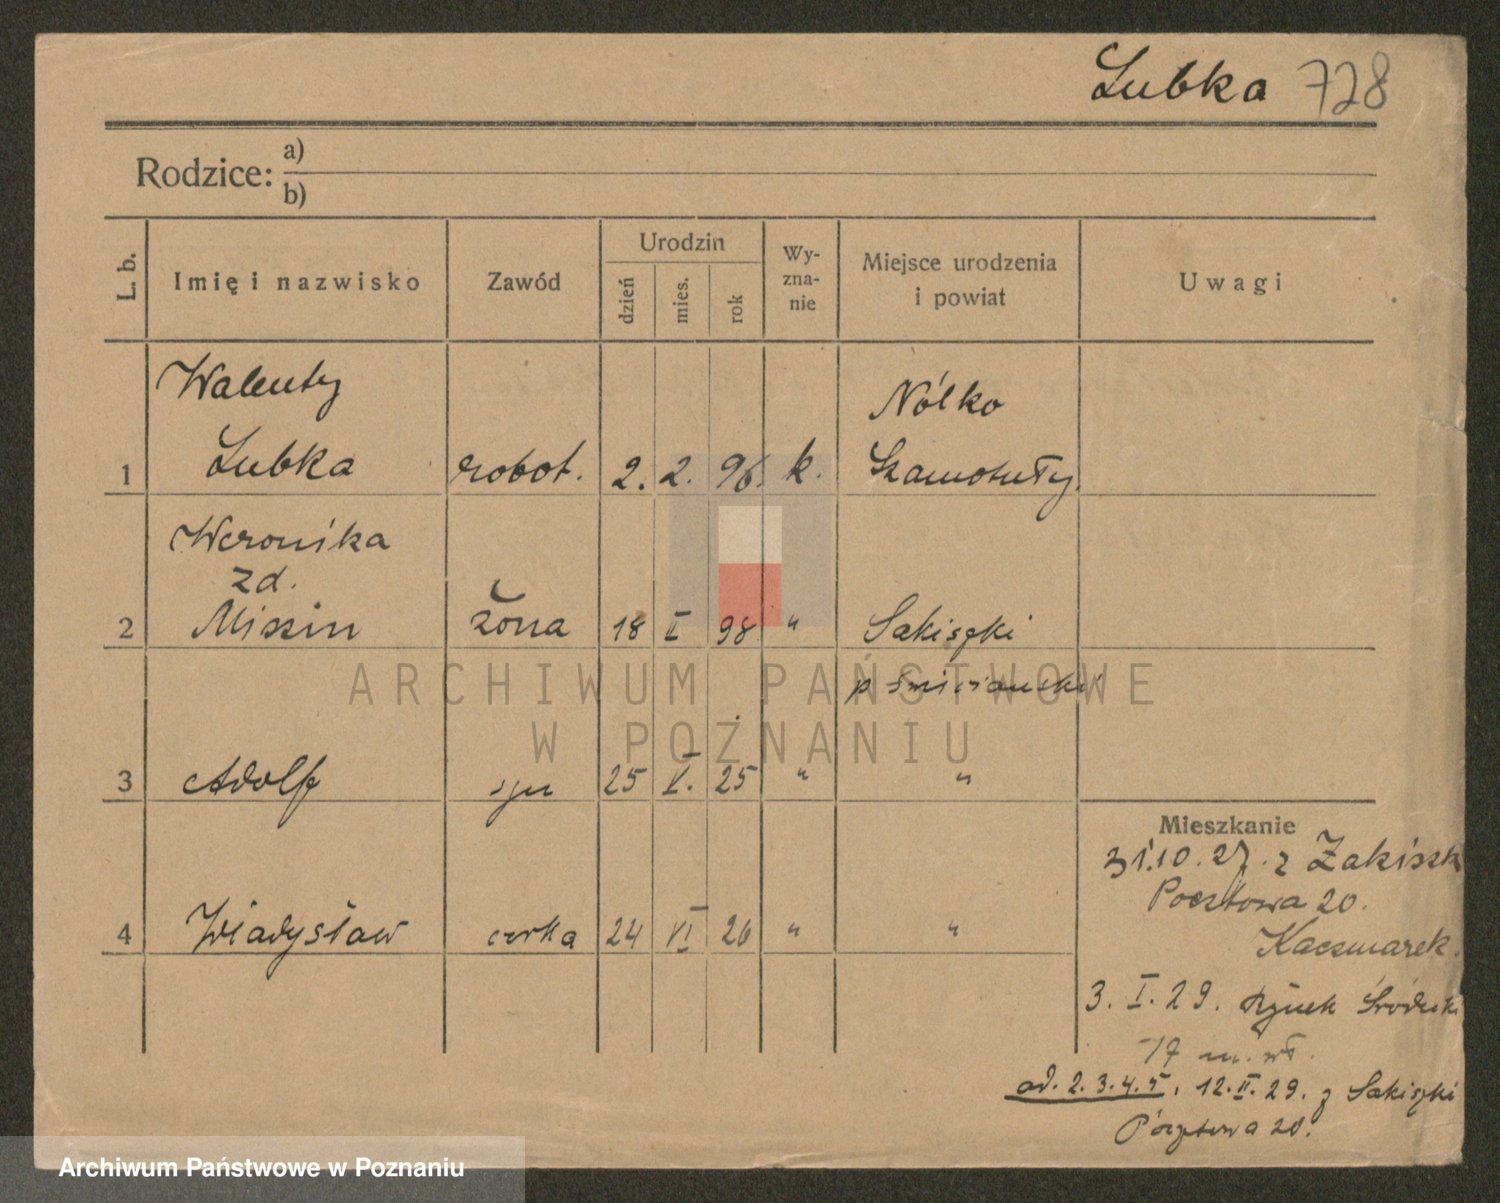 Lubka 728
Rodzice: a)
b)
L. b.
Imię i nazwisko
Zawód
Urodzin
dzień
mies.
rok
Wy-
zna-
nie
Miejsce urodzenia
i powiat
Uwagi
Walenty
Nólko
1 Lubka robot. 2. 2. 96. k. Szamotuły.
Weronika
zd.
2 Miszin żona 18 II 98 " Sakiszki
p
3 Adolf syn 25 V. 25 " "
Mieszkanie
31.10.27. z Zakiszk
Pocztowa 20.
Kaczmarek.
4 Władysław córka 24 VI 26 " "
3. I. 29. Rynek Śródecki
17 m. wł.
od. 2. 3. 4. 5. 12. II. 29. z Sakiszki
Pocztowa 20.
ARCHIWUM PAŃSTWOWE
W POZNANIU
Archiwum Państwowe w Poznaniu